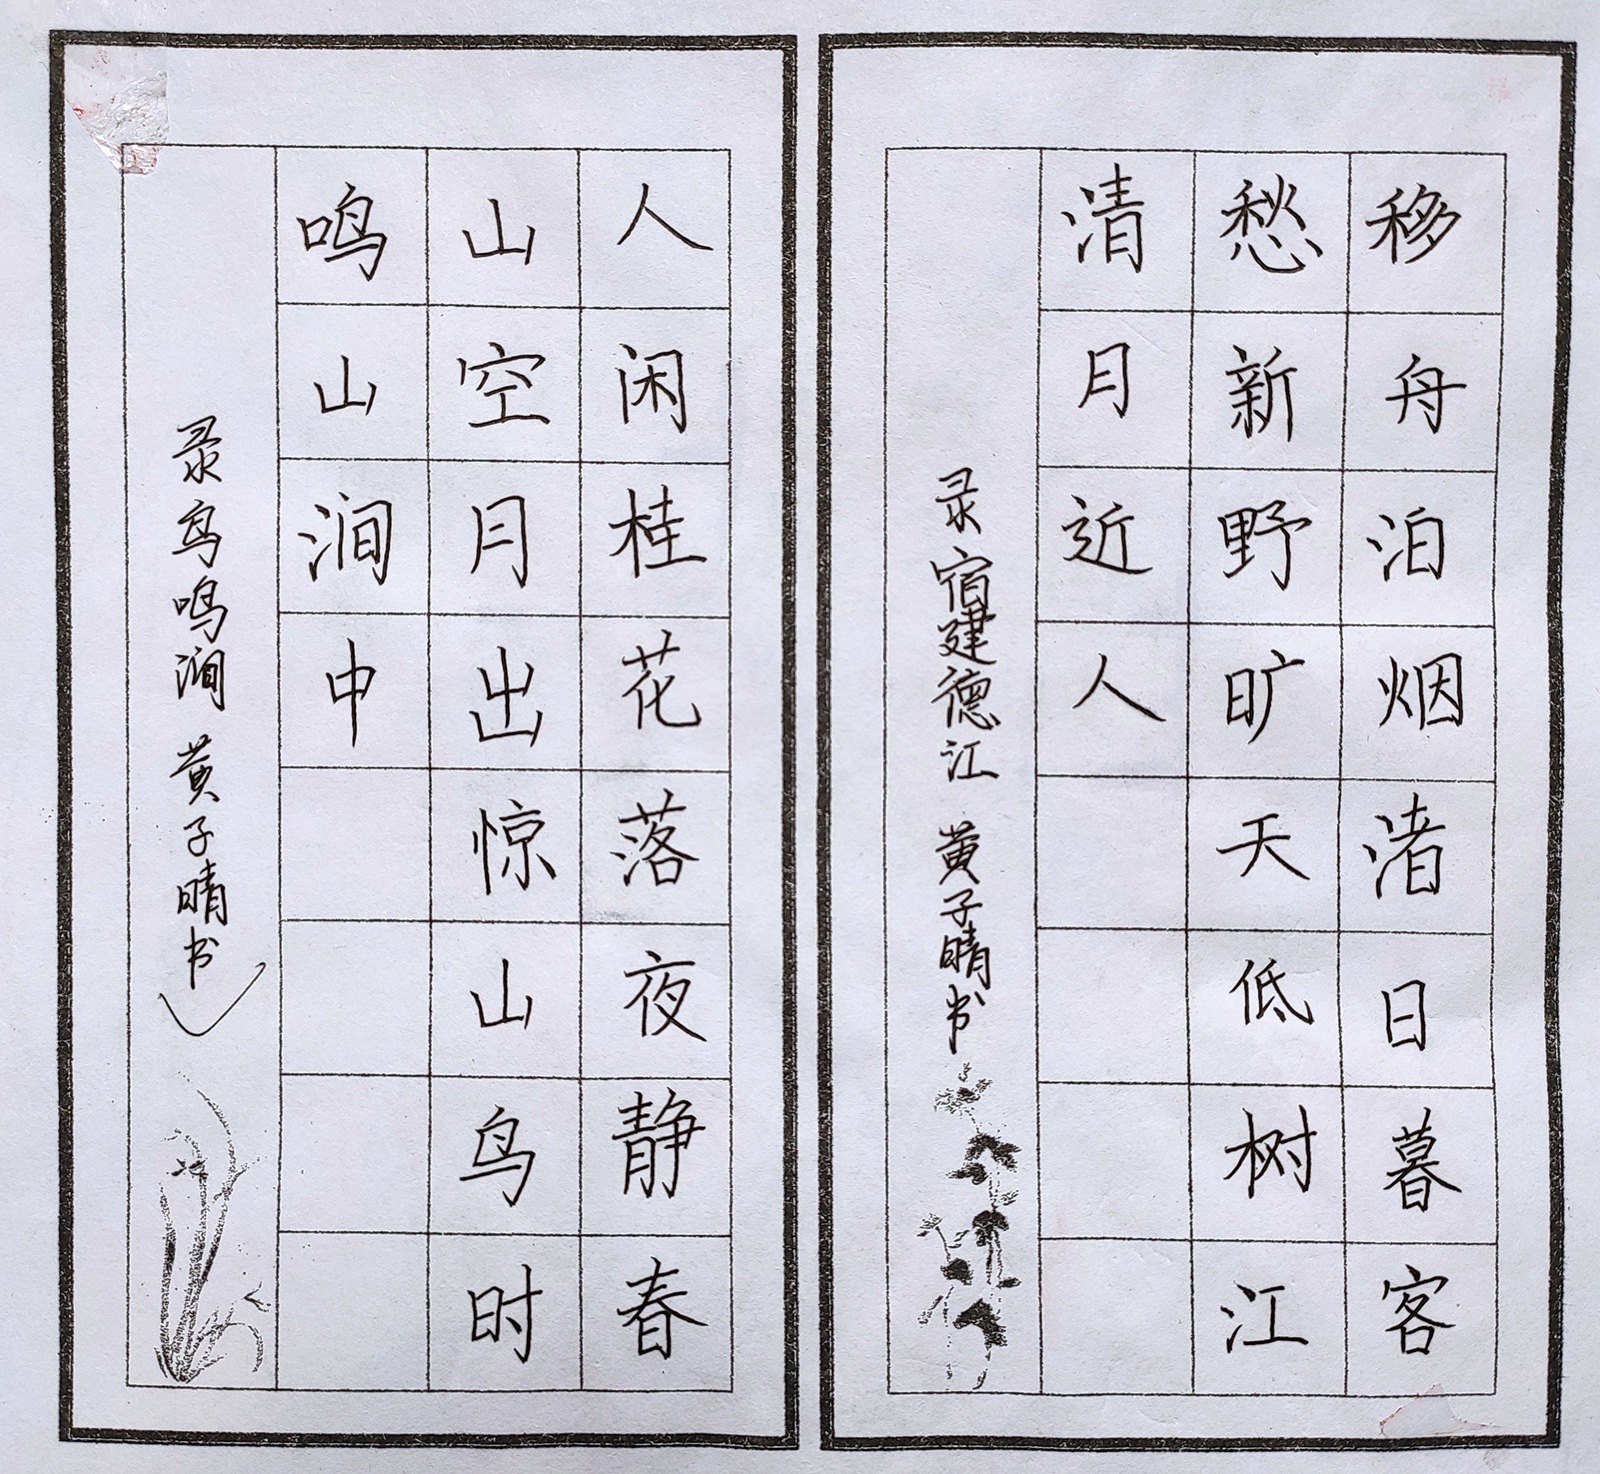 移舟泊烟渚日暮客
愁新野旷天低树江
清月近人
录宿建德江 黄子晴书
人闲桂花落夜静春
山空月出惊山鸟时
鸣山涧中
录鸟鸣涧 黄子晴书